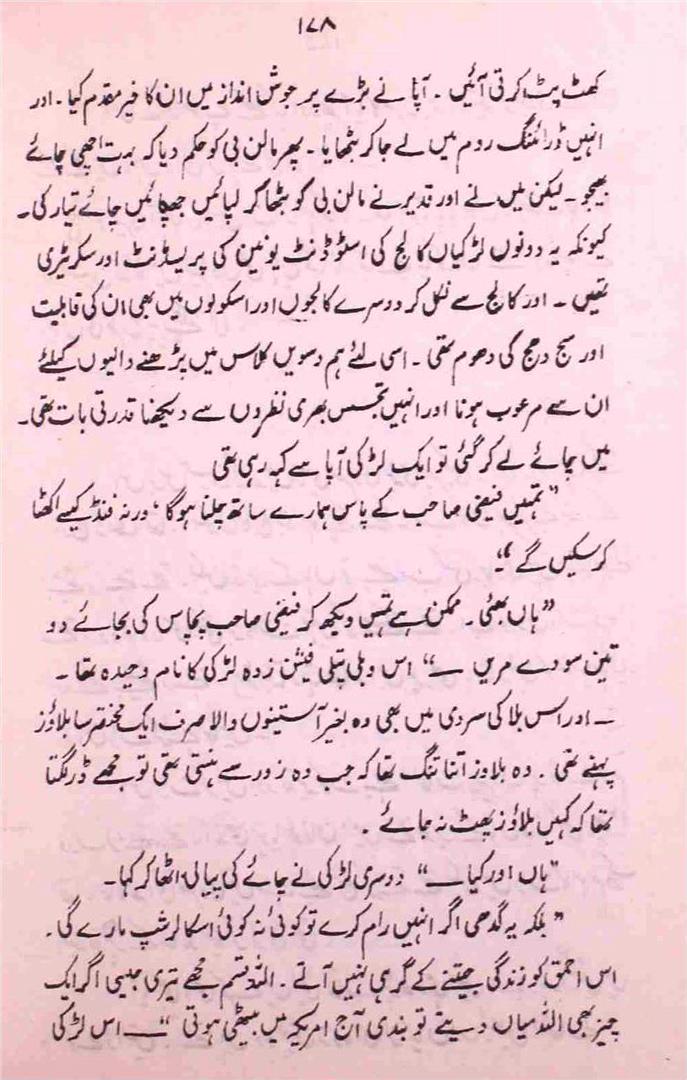 ۱۷۸
کھٹ پٹ کرتی آئیں ۔ آپا نے بڑے پر جوش انداز میں ان کا خیر مقدم کیا ۔ اور
انہیں ڈرائنگ روم میں لے جا کر بٹھایا ۔ پھر مالن بی کو حکم دیا کہ بہت اچھی چائے
بھیجو ۔ لیکن میں نے اور قدیر نے مالن بی کو بٹھا کر لپائیں جھپائیں چائے تیار کی ۔
کیونکہ یہ دونوں لڑکیاں کالج کی اسٹوڈنٹ یونین کی پریسڈنٹ اور سکریٹری
تھیں ۔ اور کالج سے نکل کر دوسرے کالجوں اور اسکولوں میں بھی ان کی قابلیت
اور سج دھج کی دھوم تھی ۔ اسی لئے ہم دسویں کلاس میں پڑھنے والیوں کیلئے
ان سے مرعوب ہونا اور انہیں تجسس بھری نظروں سے دیکھنا قدرتی بات تھی ۔
میں چائے لے کر گئی تو ایک لڑکی آپا سے کہہ رہی تھی
”تمہیں فیضی صاحب کے پاس ہمارے ساتھ چلنا ہوگا ، ورنہ فنڈ کیسے اکٹھا
کر سکیں گے “۔
”ہاں بھئی ۔ ممکن ہے تمہیں دیکھ کر فیضی صاحب پچاس کی بجائے دو
تین سو دے مریں ــ“ اس دبلی پتلی فیشن زدہ لڑکی کا نام وحیدہ تھا ۔
ــ اور اس بلا کی سردی میں بھی وہ بغیر آستینوں والا صرف ایک مختصر سا بلاؤز
پہنے تھی ۔ وہ بلاوز اتنا تنگ تھا کہ جب وہ زور سے ہنستی تھی تو مجھے ڈر لگتا
تھا کہ کہیں بلاؤز پھٹ نہ جائے ۔
”ہاں اور کیا ــ“ دوسری لڑکی نے چائے کی پیالی اٹھا کر کہا ۔
” بلکہ یہ گدھی اگر انہیں رام کرے تو کوئی نہ کوئی اسکالرشپ مارے گی ۔
اس احمق کو زندگی جیتنے کے گر ہی نہیں آتے ۔ اللہ قسم مجھے تیری جیسی اگر ایک
چیز بھی اللہ میاں دیتے تو بندی آج امریکہ میں بیٹھی ہوتی “ــ اس لڑکی